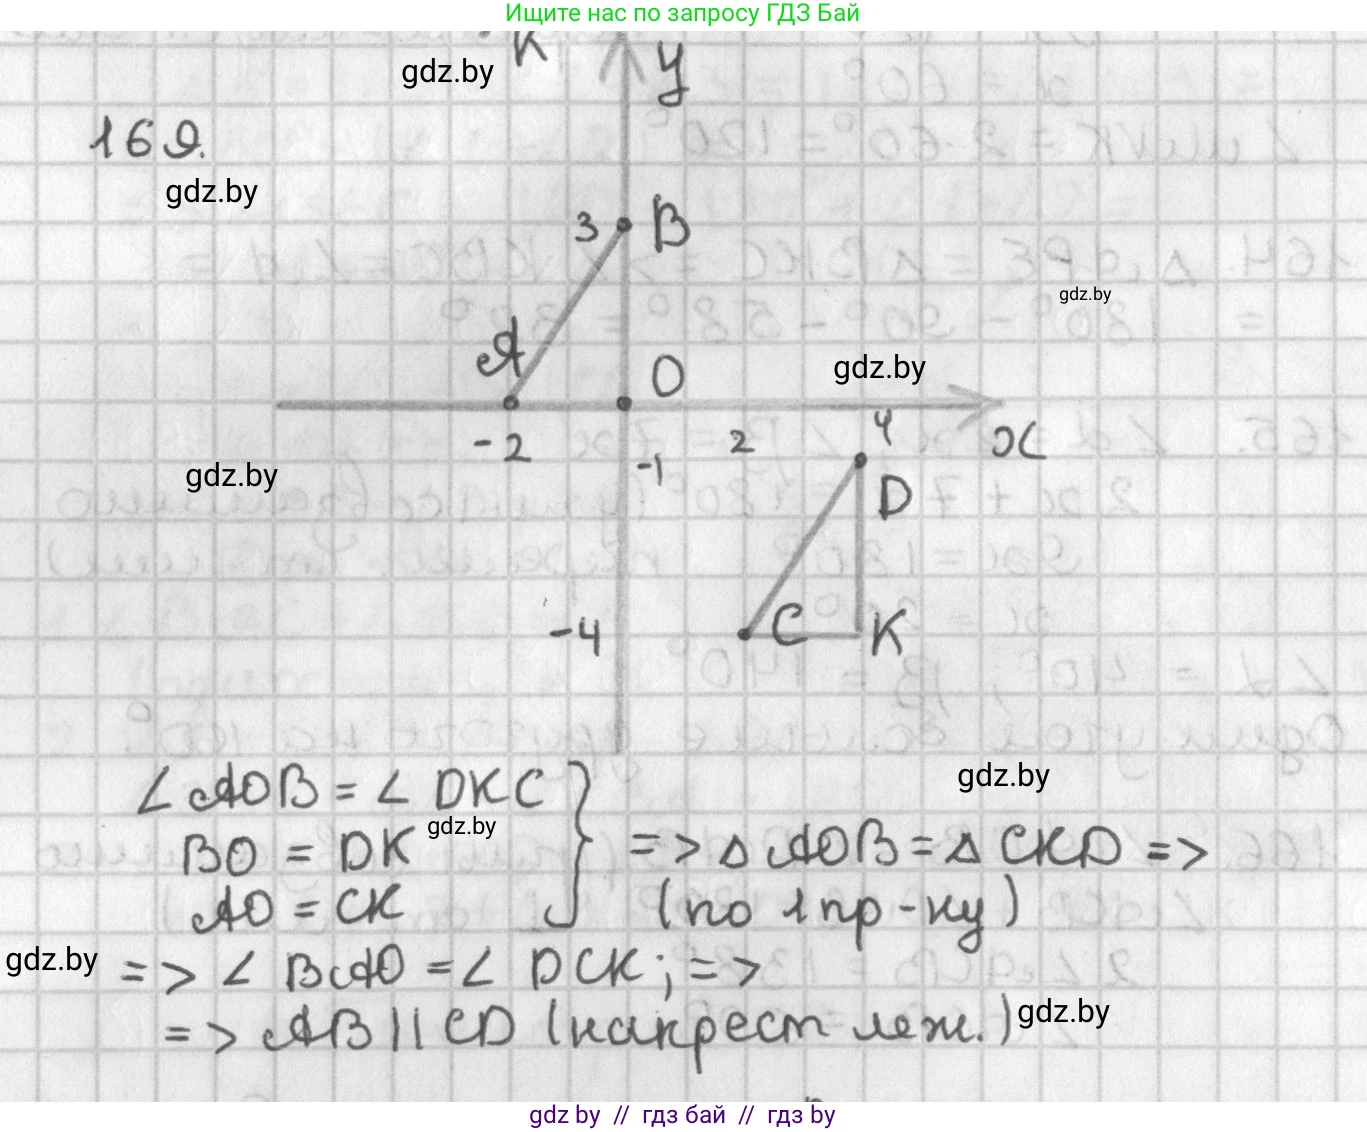 Ищите нас по запросу ГДЗ Бай
К
gdz.by
y
169.
gdz.by
3 B
gdz.by
A
O
gdz.by
-2
-1
2
4
x
gdz.by
D
-4
C
K
gdz.by
∠ AOB = ∠ DKC
gdz.by
BO = DK
=> △ AOB = △ CKD =>
AO = CK
(по 1 пр-ку)
gdz.by
=> ∠ BAO = ∠ DCK; =>
=> AB || CD (накрест леж.)
gdz.by
gdz by // гдз бай // гдз by